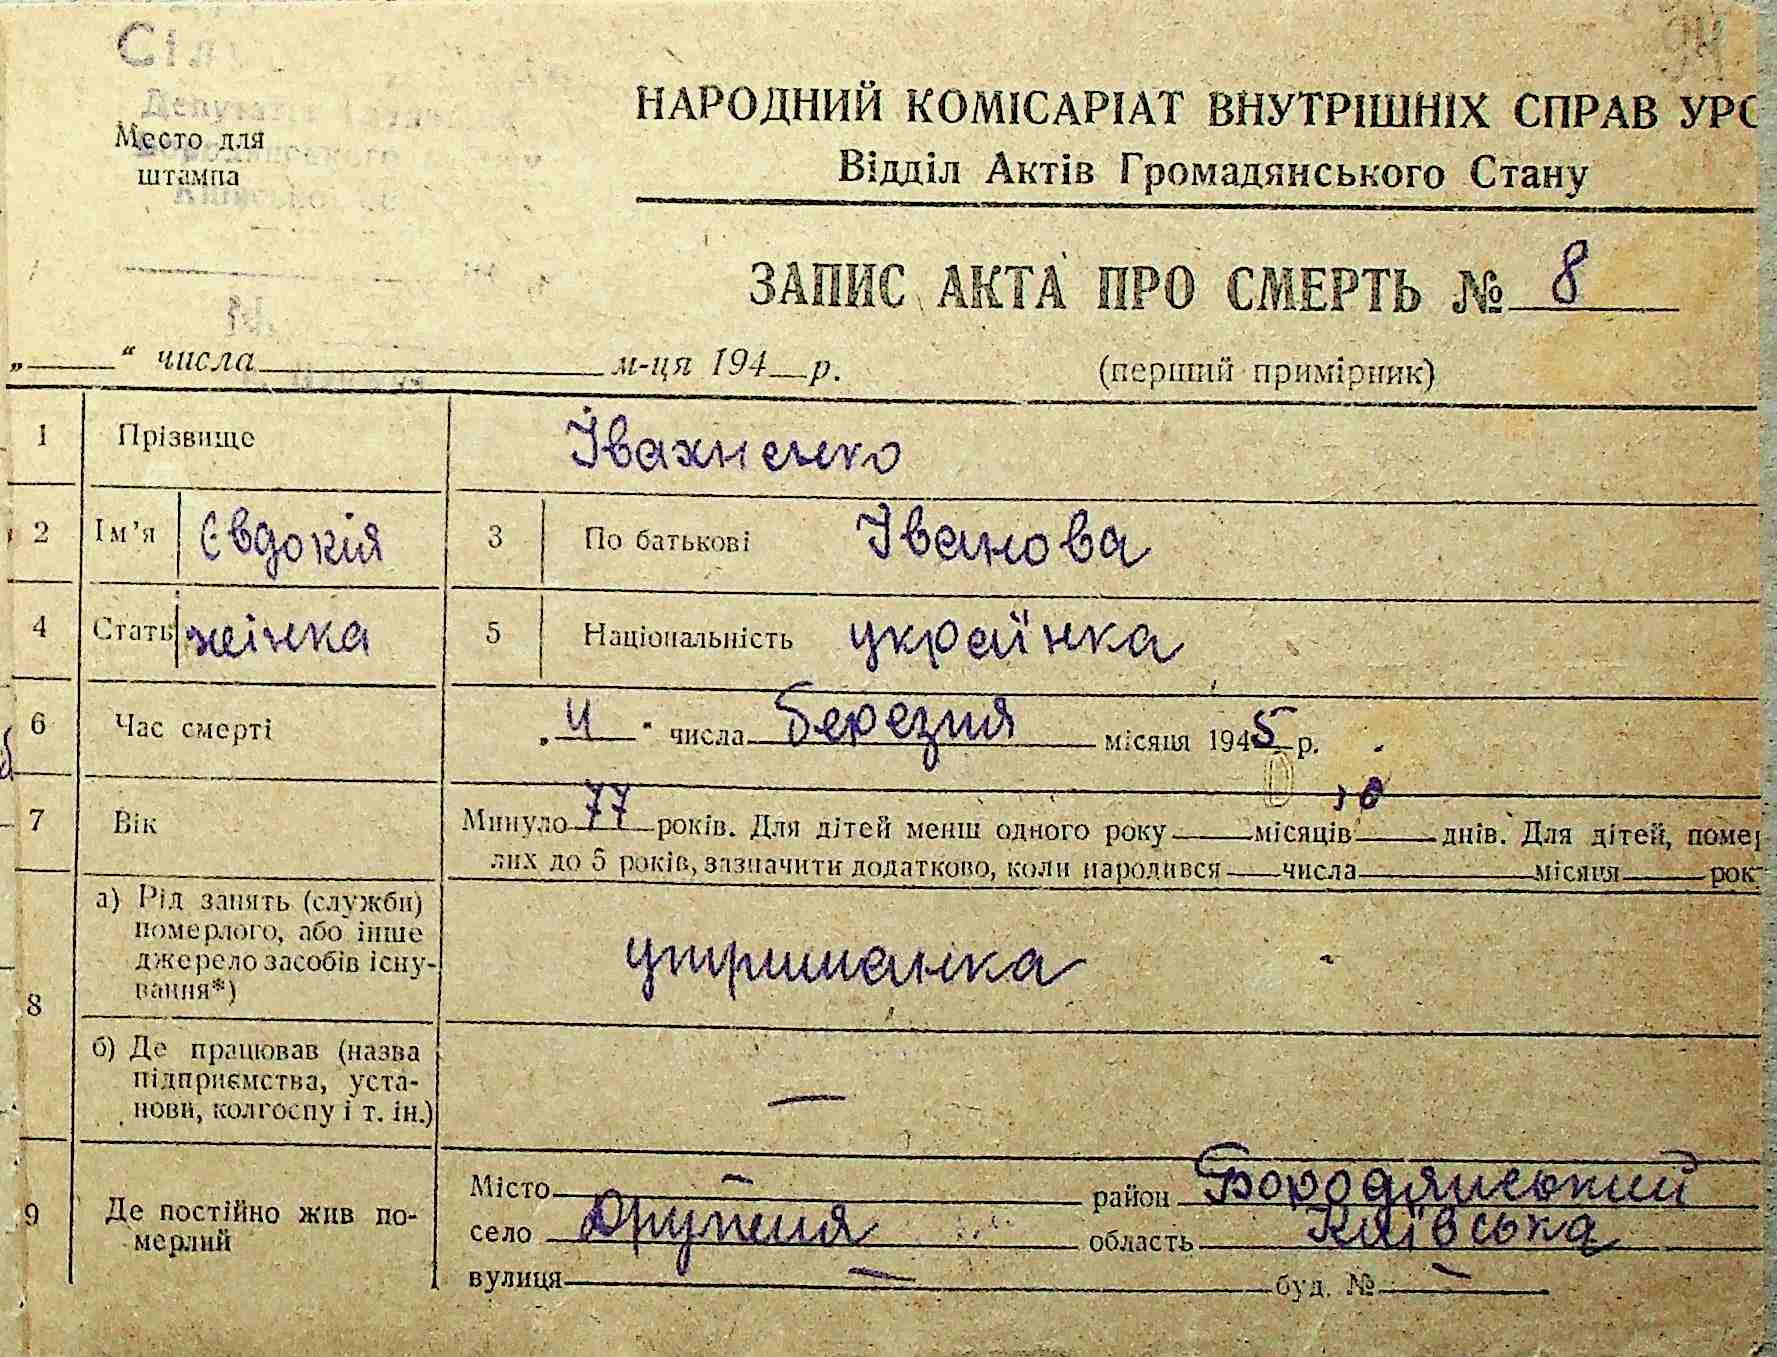 94
Сіл
Депутатів
Место для
штампа
НАРОДНИЙ КОМІСАРІАТ ВНУТРІШНІХ СПРАВ УРС
Відділ Актів Громадянського Стану
ЗАПИС АКТА ПРО СМЕРТЬ № 8
„ “ числа м-ця 194 р. (перший примірник)
1 Прізвище Івахненко
2 Ім’я Євдокія 3 По батькові Іванова
4 Стать жінка 5 Національність українка
6 Час смерті 4 числа березня місяця 1945 р.
7 Вік Минуло 77 років. Для дітей менш одного року місяців днів. Для дітей, помер
лих до 5 років, зазначити додатково, коли народився числа місяця рок
8 а) Рід занять (служби)
померлого, або інше
джерело засобів існу-
вання*)
утриманка
б) Де працював (назва
підприємства, уста-
нови, колгоспу і т. ін.)
—
9 Де постійно жив по-
мерлий
Місто — район Бородянський
село Друженя область Київська
вулиця — буд. № —